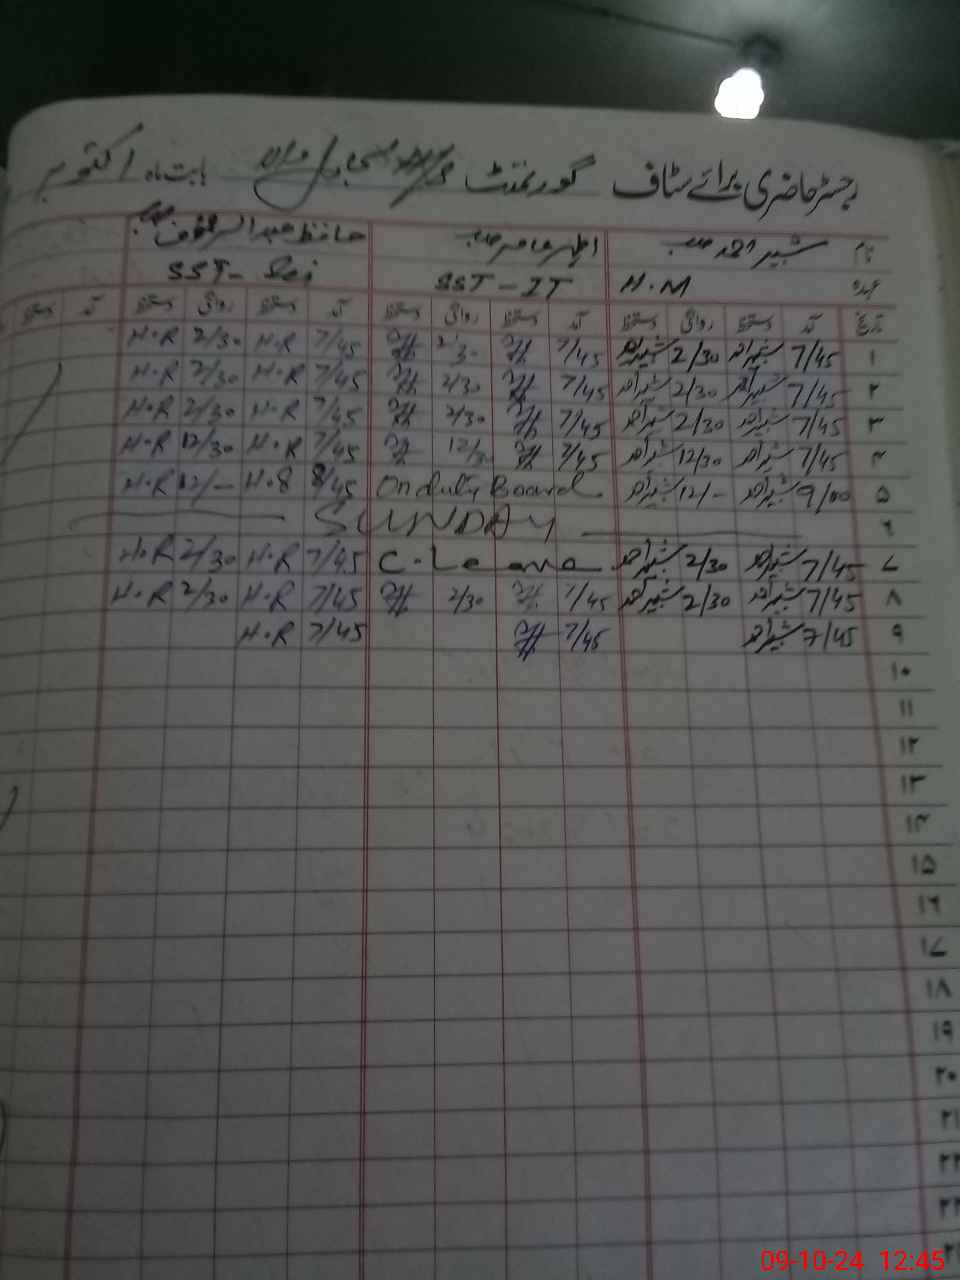 رجسٹر حاضری برائے سٹاف گورنمنٹ بابت ماہ اکتوبر
نام شبیر احمد صاحب اطہر عامر صاحب حافظ عبدالرؤف صاحب
عہدہ H.M SST-IT SST-
تاریخ آمد دستخط روانگی دستخط آمد دستخط روانگی دستخط آمد دستخط روانگی دستخط آمد دستخط
۱ 7/45 شبیر احمد 2/30 شبیر احمد 7/45 2/30 7/45 H.R 2/30 H.R
۲ 7/45 شبیر احمد 2/30 شبیر احمد 7/45 2/30 7/45 H.R 2/30 H.R
۳ 7/45 شبیر احمد 2/30 شبیر احمد 7/45 2/30 7/45 H.R 2/30 H.R
۴ 7/45 شبیر احمد 12/30 شبیر احمد 7/45 12/30 7/45 H.R 12/30 H.R
۵ 9/00 شبیر احمد 12/- شبیر احمد On duty Board 8/45 H.R 12/- H.R
۶ SUNDAY
۷ 7/45 شبیر احمد 2/30 شبیر احمد C-Leave 7/45 H.R 2/30 H.R
۸ 7/45 شبیر احمد 2/30 شبیر احمد 7/45 2/30 7/45 H.R 2/30 H.R
۹ 7/45 شبیر احمد 7/45 7/45 H.R
۱۰
۱۱
۱۲
۱۳
۱۴
۱۵
۱۶
۱۷
۱۸
۱۹
۲۰
۲۱
۲۲
۲۳
09-10-24 12:45